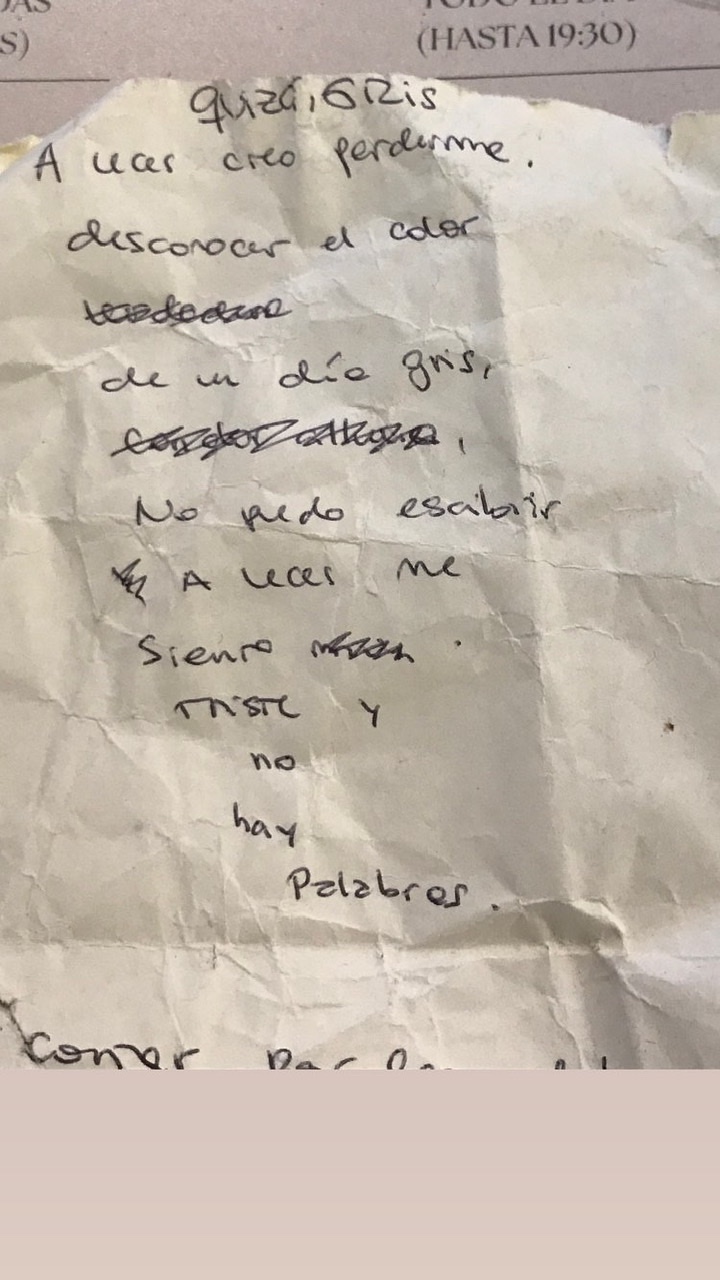 S)
(HASTA 19:30)
quizá, GRis
A veces creo perderme.
desconocer el color
de un día gris,
No puedo escibir
A veces me
Siento
triste y
no
hay
Palabras.
Comer por